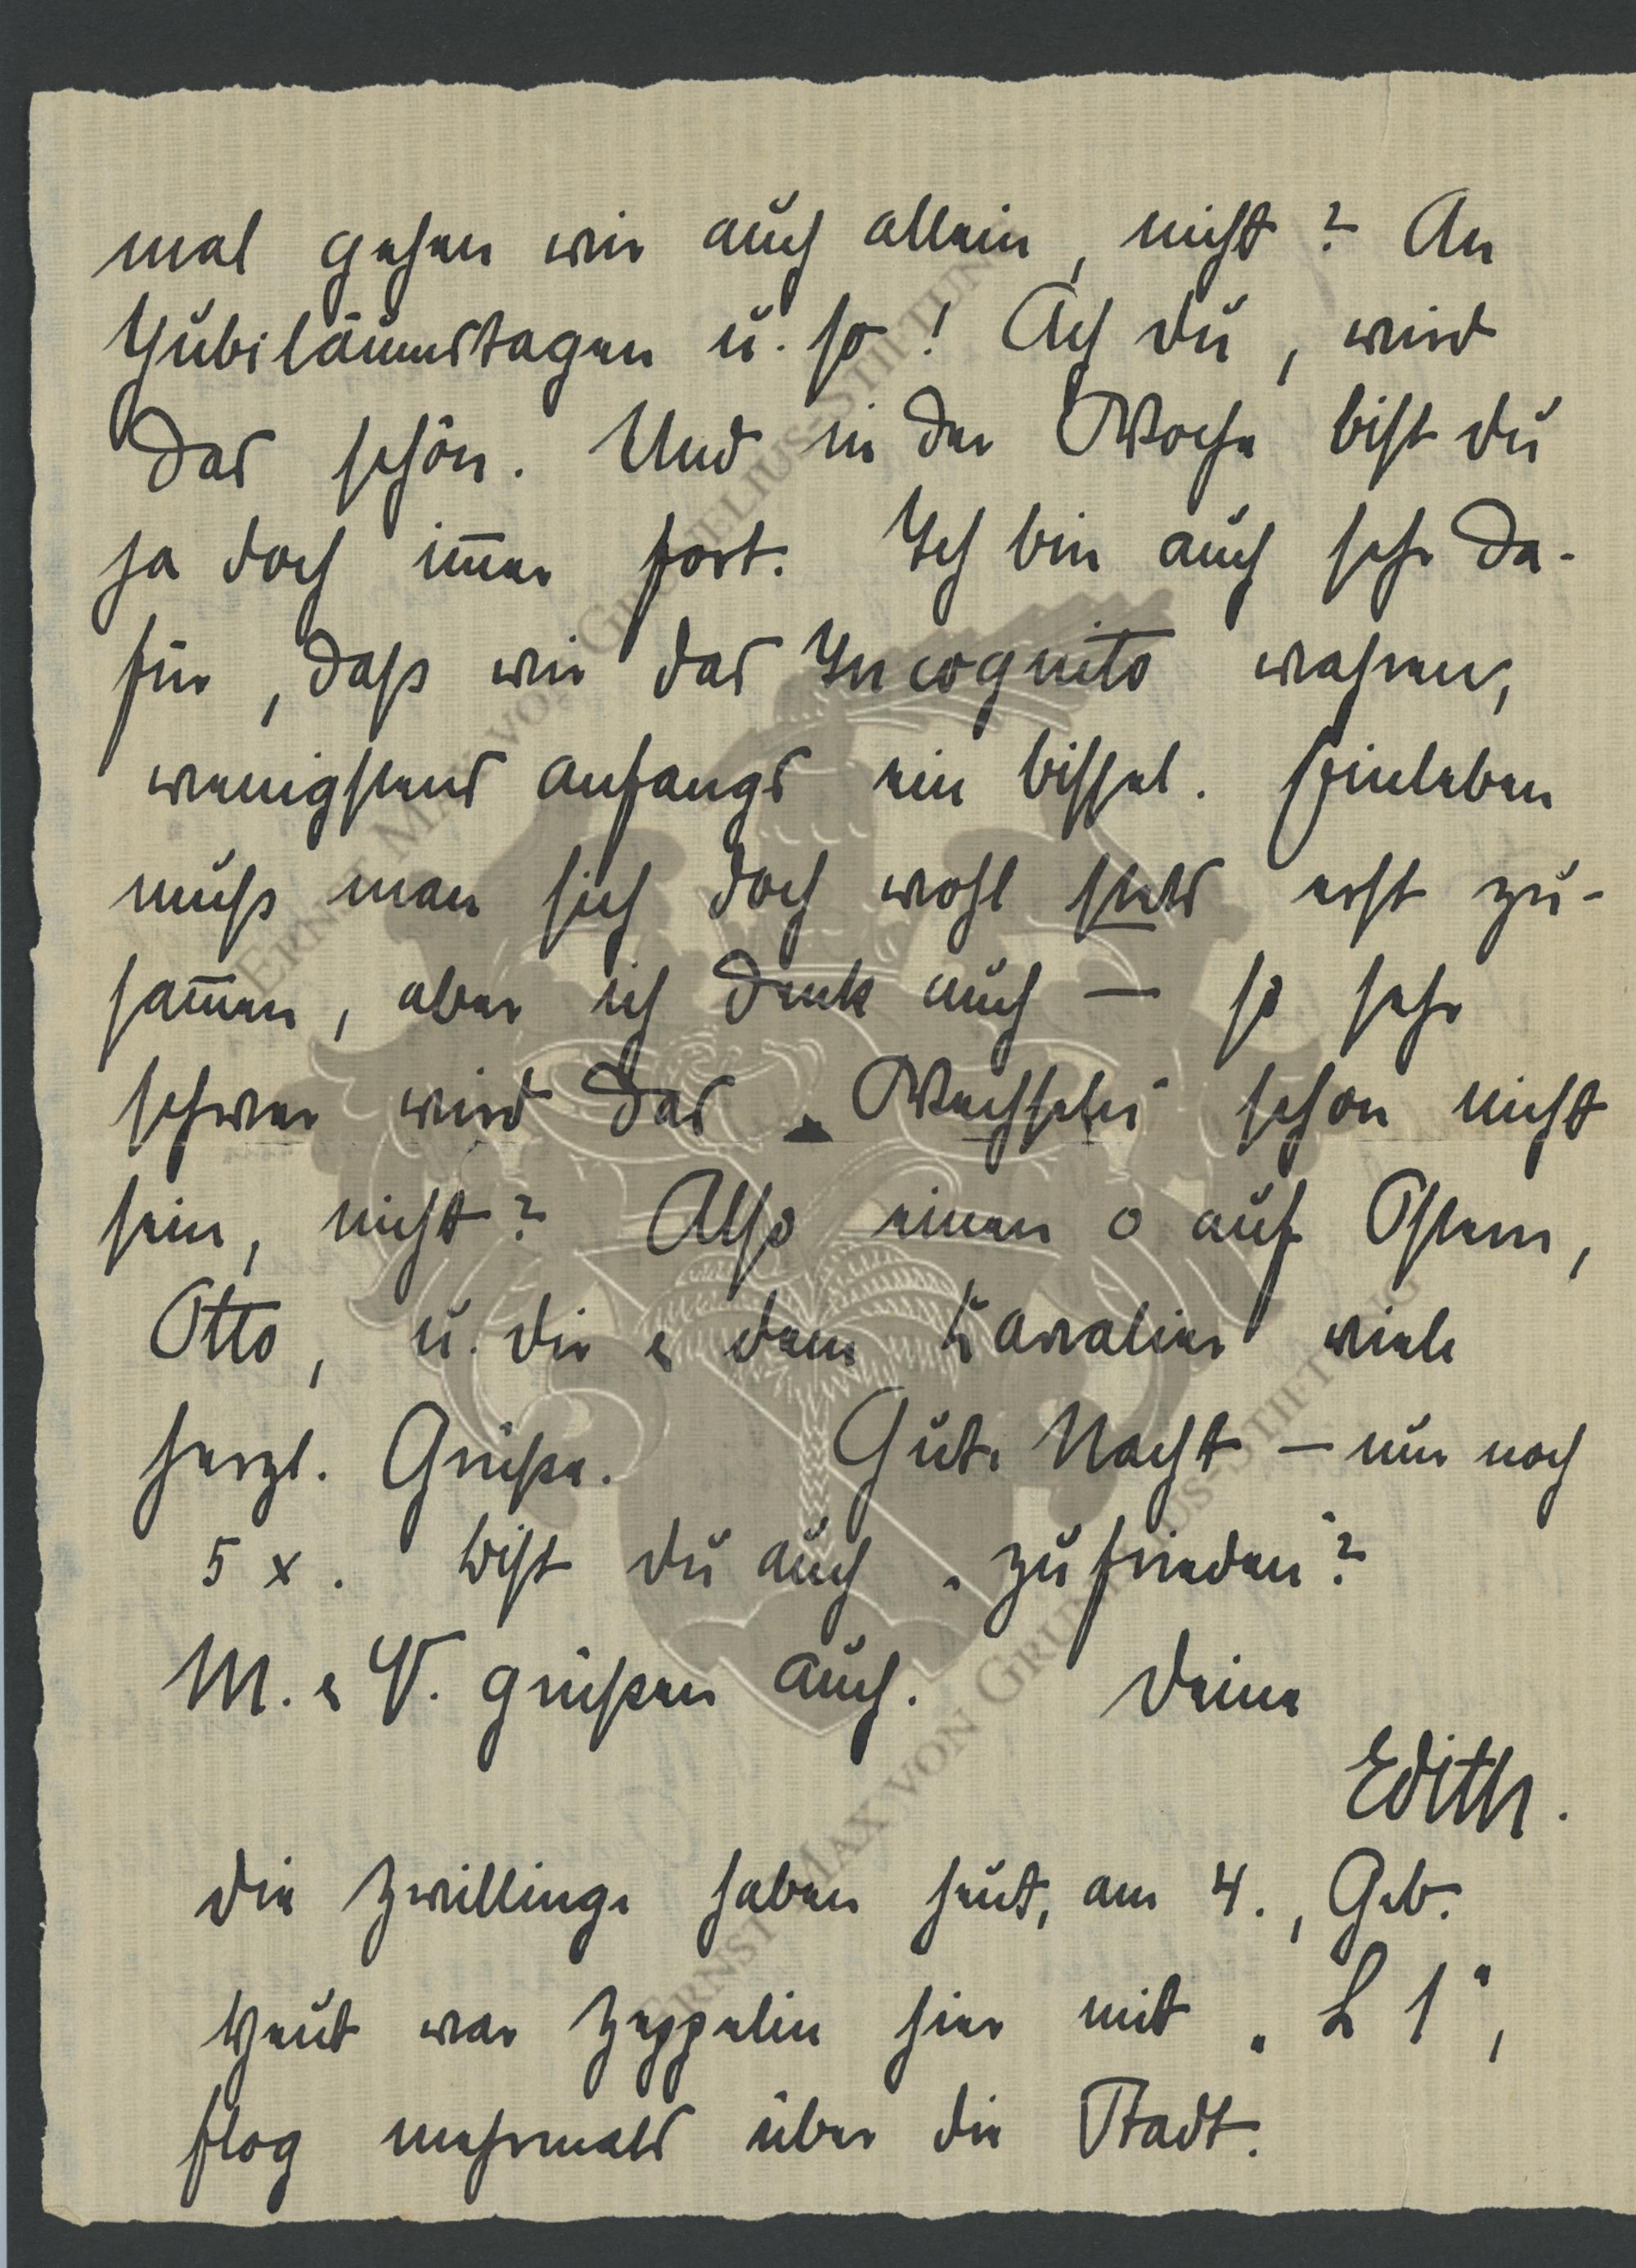 mal gehen wir auch allein, nicht? An
Jubiläumstagen u. so! Ach du, wird
das schön. Und in der Woche bist du
ja doch im̅er fort. Ich bin auch sehr da-
für, daß wir das Incognito wahren,
wenigstens anfangs ein bissel. Einleben
muß man sich doch wohl stets erst zu-
sam̅en, aber ich denk auch — so sehr
schwer wird das „Wechseln“ schon nicht
sein, nicht? Also einen o auf Ostern,
Otto, u. dir & dem Kavalier viele
herzl. Grüße. Gute Nacht — nur noch
5 x. Bist du auch „zufrieden“?
M. & V. grüßen auch. Deine
Edith.
Die Zwillinge haben heut, am 4., Geb.
Heut war Zeppelin hier mit „L 1“,
flog mehrmals über die Stadt.
ERNST MAX VON GRUNELIUS-STIFTUNG
ERNST MAX VON GRUNELIUS-STIFTUNG